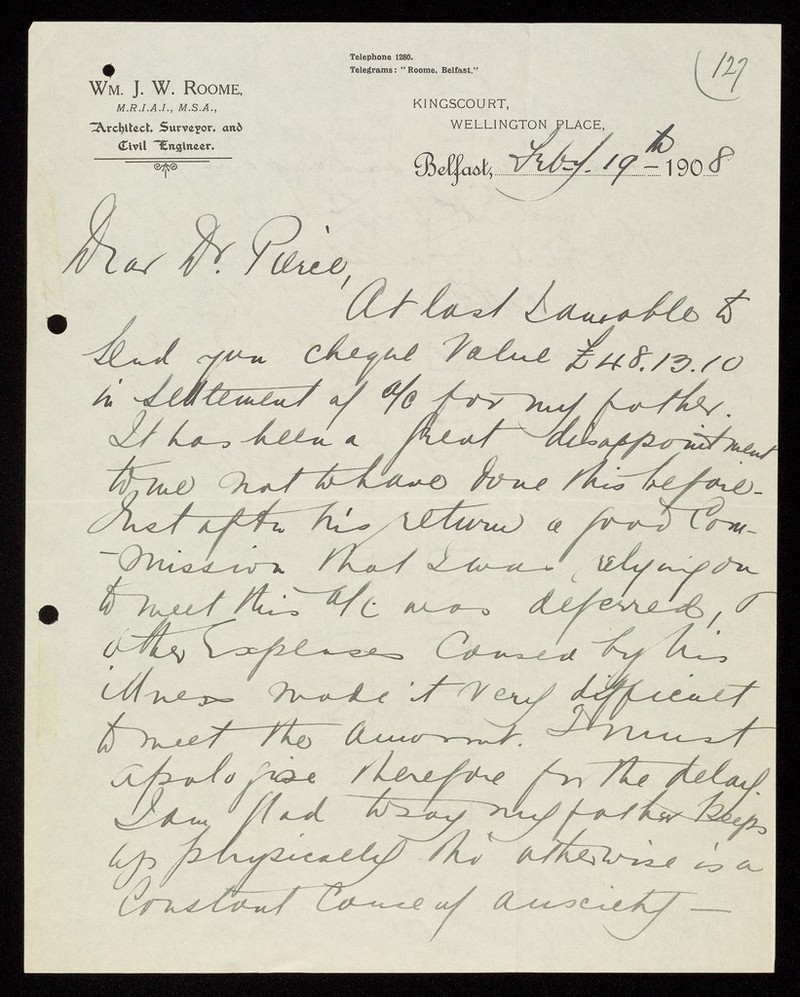 Telephone 1280.
Telegrams: "Roome, Belfast."
(127
Wm. J. W. Roome,
M.R.I.A.I., M.S.A.,
Architect, Surveyor, and
Civil Engineer.
KINGSCOURT,
WELLINGTON PLACE,
Belfast, Feby. 19th 1908
Dear Dr. Pierce,
At last I am able to
send you cheque value £48.13.10
in settlement of a/c for my father.
It has been a great disappointment
to me not to have done this before.
Just after his return a good Com-
-mission that I was relying on
to meet this a/c was deferred, &
other expenses caused by his
illness made it very difficult
to meet the amount. I must
apologise therefore for the delay.
I am glad to say my father keeps
up physically tho' otherwise is a
constant cause of anxiety —